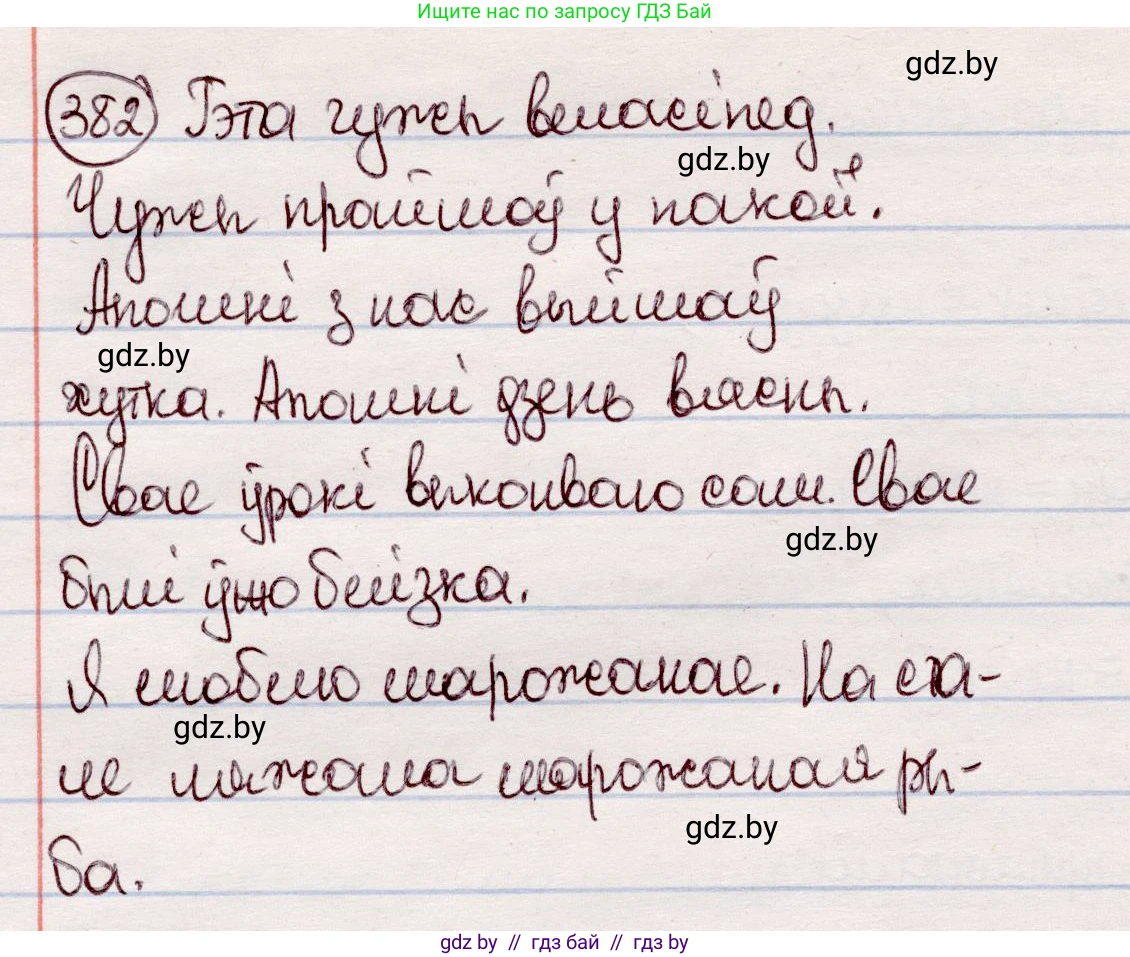 Ищите нас по запросу ГДЗ Бай
gdz.by
382 Гэта чужы веласіпед.
gdz.by
Чужы прайшоў у пакой.
Апошні з нас выйшаў
gdz.by
хутка. Апошні дзень вясны.
Свае ўрокі выконваю сам. Свае
gdz.by
былі ўжо блізка.
Я люблю марожанае. На ста-
gdz.by
ле ляжала марожаная ры-
gdz.by
ба.
gdz by // гдз бай // гдз by